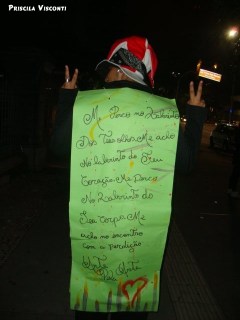 Priscila Visconti
Me Perco no Labirinto
Dos Teus olhos Me acho
No labirinto do Teu
Coração Me Perco
No Labirinto do
Teu Corpo Me
acho no encontro
com a perdição
Arte
Por Arte